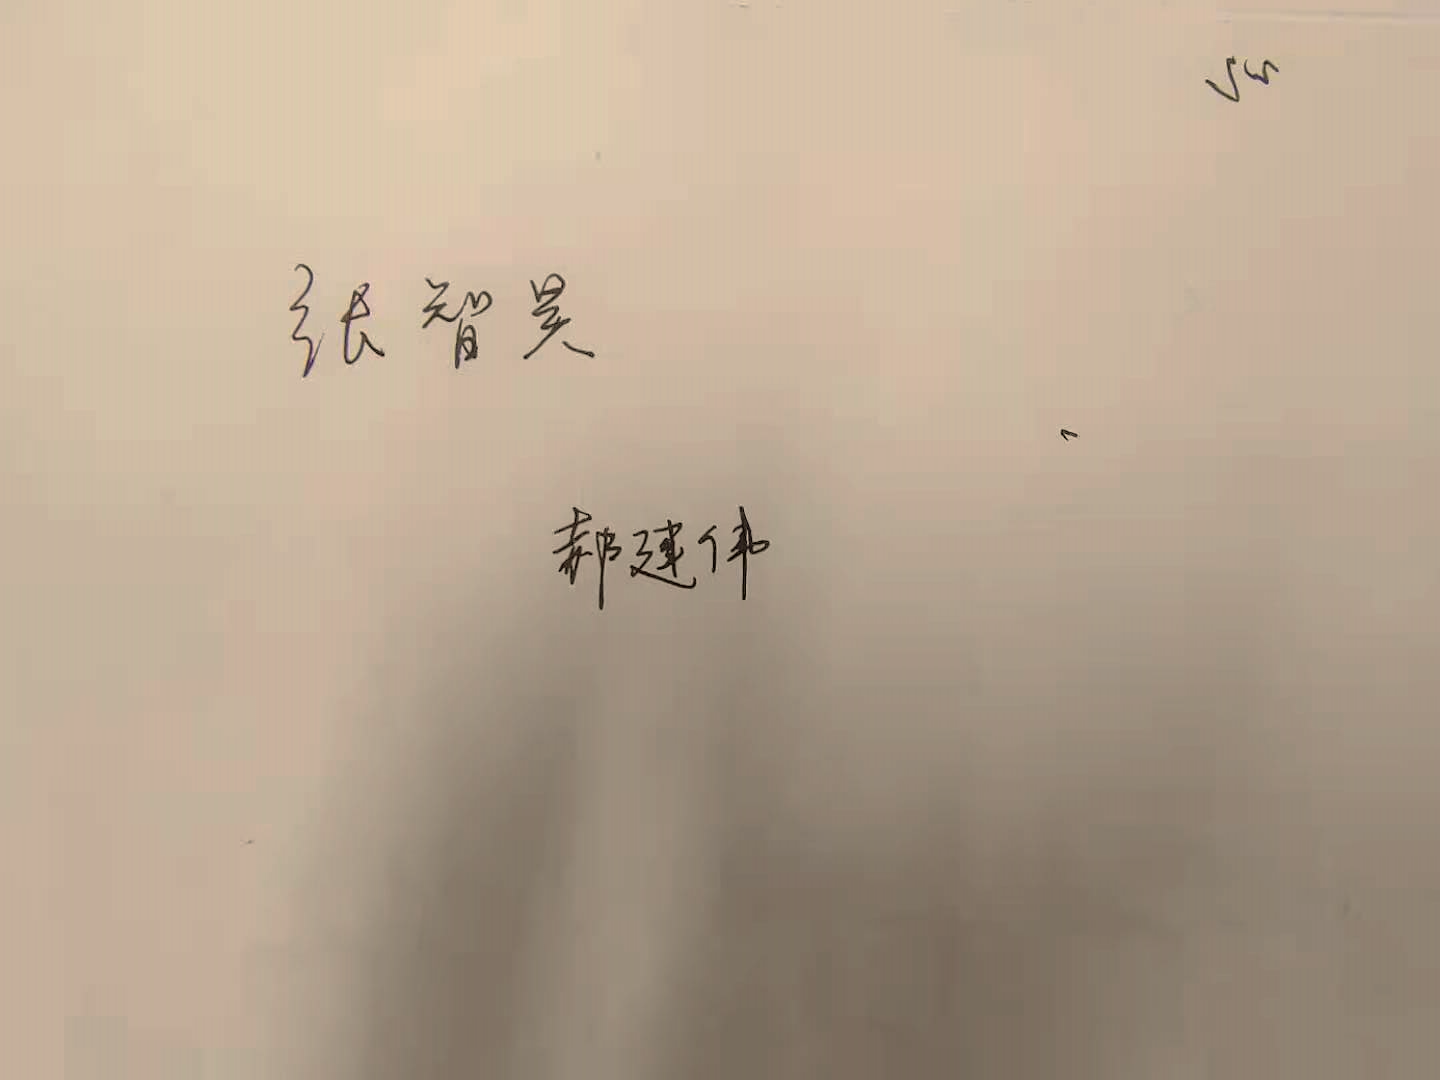 张智昊
郝建伟